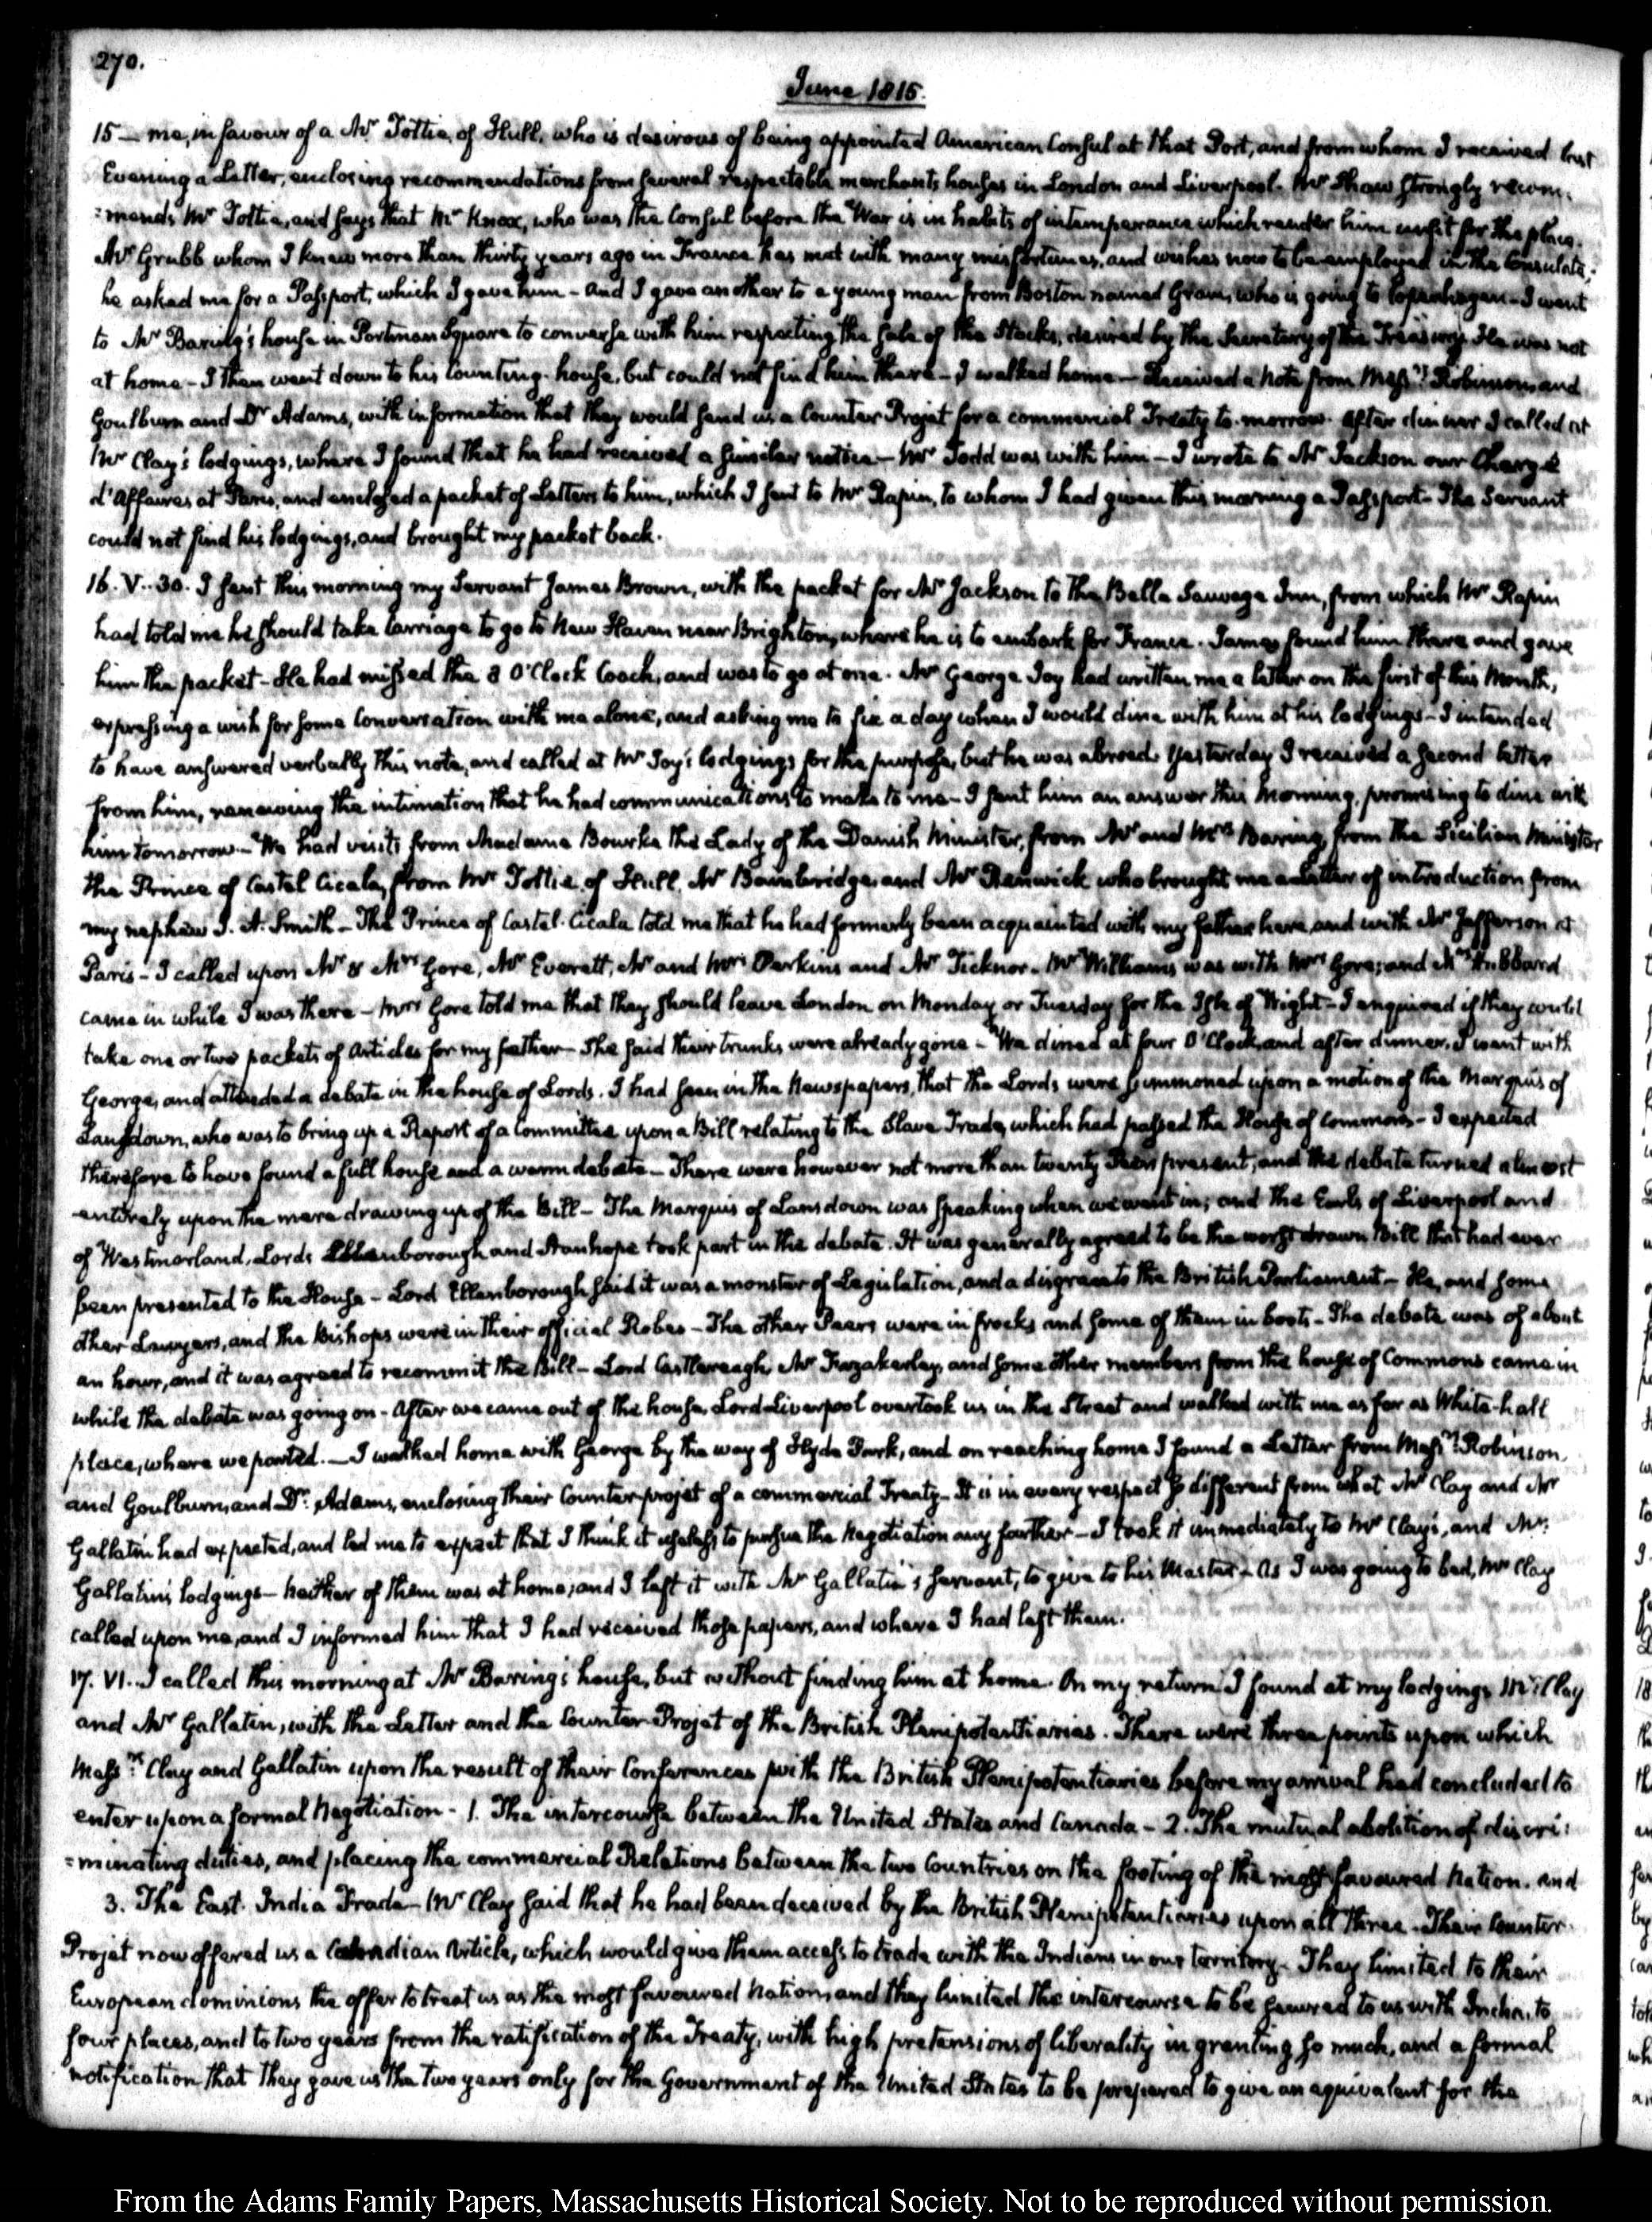 270.
June 1815.
15— me, in favour of a Mr. Tottie, of Hull, who is desirous of being appointed American Consul at that Port, and from whom I received last
Evening a Letter, enclosing recommendations from several respectable merchants houses in London and Liverpool. Mr Shaw strongly recom:
:mends Mr Tottie, and says that Mr Knox, who was the Consul before the War is in habits of intemperance which render him unfit for the place.
Mr Grubb whom I knew more than thirty years ago in France has met with many misfortunes, and wishes now to be employed in the Consulate;
he asked me for a Passport, which I gave him – and I gave another to a young man from Boston named Gram, who is going to Copenhagen – I went
to Mr Baring's house in Portman Square to converse with him respecting the sale of the Stocks, desired by the Secretary of the Treasury. He was not
at home – I then went down to his Counting-house, but could not find him there – I walked home – Received a Note from Messrs. Robinson and
Goulburn and Dr Adams, with information that they would send us a Counter Projet for a commercial Treaty to-morrow. After dinner I called at
Mr Clay's lodgings, where I found that he had received a similar notice – Mr Todd was with him – I wrote to Mr Jackson our Chargé
d'Affaires at Paris, and enclosed a packet of Letters to him, which I sent to Mr Rapin, to whom I had given this morning a Passport – The Servant
could not find his lodgings, and brought my packet back.
16. V..30. I sent this morning my Servant James Brown, with the packet for Mr Jackson to the Belle Sauvage Inn, from which Mr Rapin
had told me he should take Carriage to go to New Haven near Brighton, where he is to embark for France. James found him there and gave
him the packet – He had missed the 8 O'Clock Coach, and was to go at one. Mr George Joy had written me a letter on the first of this Month,
expressing a wish for some Conversation with me alone, and asking me to fix a day when I would dine with him at his lodgings – I intended
to have answered verbally this note, and called at Mr Joy's lodgings for the purpose, but he was abroad. Yesterday I received a second letter
from him, renewing the intimation that he had communications to make to me – I sent him an answer this morning, promising to dine with
him tomorrow – We had visits from Madame Bourke the Lady of the Danish Minister, from Mr and Mrs Baring, from the Sicilian Minister
the Prince of Castel Cicala, from Mr Tottie of Hull, Mr Bainbridge, and Mr Renwick who brought me a Letter of introduction from
my nephew J. A. Smith – The Prince of Castel-Cicala told me that he had formerly been acquainted with my father here, and with Mr Jefferson at
Paris – I called upon Mr & Mrs Gore, Mr Everett, Mr and Mrs Perkins and Mr Ticknor. Mr Williams was with Mrs Gore; and Mr Hubbard
came in while I was there – Mrs Gore told me that they should leave London on Monday or Tuesday for the Isle of Wight – I enquired if they could
take one or two packets of Articles for my father – She said their trunks were already gone – We dined at four O'Clock, and after dinner, I went with
George, and attended a debate in the house of Lords. I had seen in the Newspapers, that the Lords were summoned upon a motion of the Marquis of
Lansdown, who was to bring up a Report of a Committee upon a Bill relating to the Slave Trade, which had passed the House of Commons – I expected
therefore to have found a full house and a warm debate – There were however not more than twenty Peers present, and the debate turned almost
entirely upon the mere drawing up of the Bill – The Marquis of Lansdown was speaking when we went in; and the Earls of Liverpool and
of Westmorland, Lords Ellenborough and Stanhope took part in the debate. It was generally agreed to be the worst drawn Bill that had ever
been presented to the House – Lord Ellenborough said it was a monster of Legislation, and a disgrace to the British Parliament – He, and some
other Lawyers, and the Bishops were in their official Robes – The other Peers were in frocks and some of them in boots – The debate was of about
an hour, and it was agreed to recommit the Bill – Lord Castlereagh, Mr Frazakerley, and some other members from the house of Commons came in
while the debate was going on – After we came out of the house, Lord Liverpool overtook us in the Street and walked with me as far as White-hall
place, where we parted. — I walked home with George by the way of Hyde Park, and on reaching home I found a Letter from Messrs. Robinson
and Goulburn, and Dr. Adams, enclosing their Counter-projet of a commercial Treaty – It is in every respect so different from what Mr Clay and Mr
Gallatin had expected, and led me to expect that I think it useless to pursue the Negotiation any further – I took it immediately to Mr Clay's, and Mr.
Gallatin's lodgings – neither of them was at home; and I left it with Mr Gallatin's servant, to give to his Master – As I was going to bed, Mr Clay
called upon me, and I informed him that I had received those papers, and where I had left them.
17. VI. I called this morning at Mr Baring's house, but without finding him at home. On my return I found at my lodgings Mr. Clay
and Mr Gallatin, with the Letter and the Counter-Projet of the British Plenipotentiaries. There were three points upon which
Messrs. Clay and Gallatin upon the result of their Conferences with the British Plenipotentiaries before my arrival had concluded to
enter upon a formal Negotiation – 1. The intercourse between the United States and Canada – 2. The mutual abolition of discri:
:minating duties, and placing the commercial Relations between the two Countries on the footing of the most favoured Nation. and
3. The East. India Trade – Mr Clay said that he had been deceived by the British Plenipotentiaries upon all three – Their Counter-
Projet now offered us a Canadian Article, which would give them access to trade with the Indians in our territory – They limited to their
European dominions the offer to treat us as the most favoured Nation, and they limited the intercourse to be secured to us with India, to
four places, and to two years from the ratification of the Treaty, with high pretensions of liberality in granting so much, and a formal
notification that they gave us the two years only for the Government of the United States to be prepared to give an equivalent for the
From the Adams Family Papers, Massachusetts Historical Society. Not to be reproduced without permission.